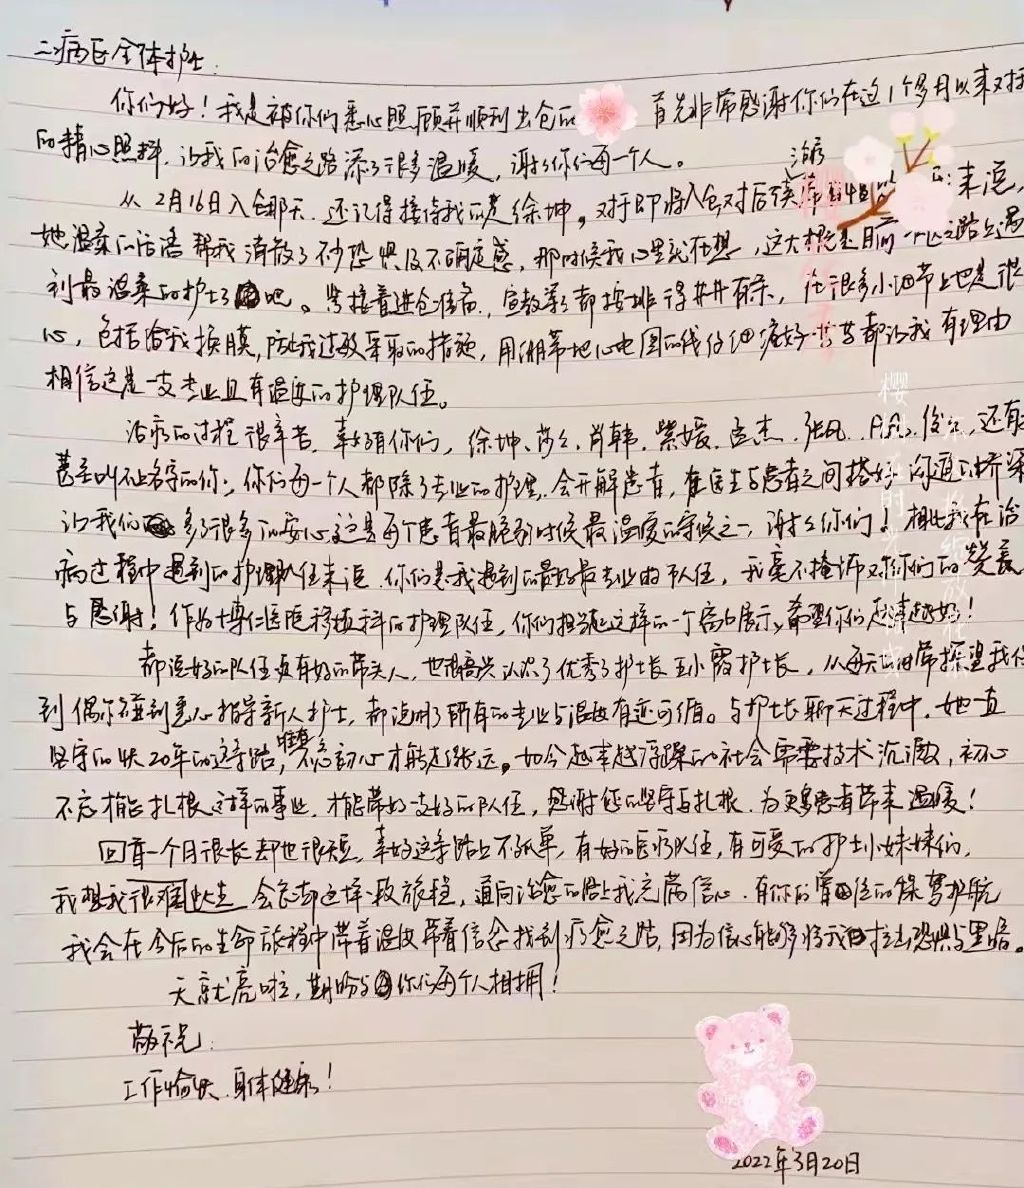 二病区全体护士:
你们好！我是被你们悉心照顾并顺利出仓的 首先非常感谢你们在这1个多月以来对我
的精心照料，让我的治愈之路添了很多温暖，谢谢你们每一个人。
从2月16日入仓那天，还记得接待我的是徐坤，对于即将入仓对后续治疗 来说，
她温柔的话语帮我消散了不少恐惧及不确定感，那时候我心里就在想，这大概是目前 之路上遇
到最温柔的护士了吧。紧接着进仓准备，宣教等都安排得井井有条，在很多小细节上也是很
心，包括给我换膜，防止我过敏采取的措施，用绷带把心电图的线仔细 好 都让我有理由
相信这是一支专业且有温度的护理队伍。
治疗的过程很辛苦，幸好有你们，徐坤、莎莎、肖韩、紫媛、 杰、张凤、 还有
甚至叫不上名字的你们，你们每一个人都除了专业的护理，会开解患者，在医生与患者之间搭好沟通的桥梁
让我们多了很多的安心，这是每个患者最脆弱时候最温暖的守候之一，谢谢你们！相比我在治
病过程中遇到的护理队伍来说，你们是我遇到的最好最专业的队伍，我毫不掩饰对你们的赞美
与感谢！作为博仁医院移植科的护理队伍，你们担当起这样的一个窗口展示，希望你们越来越好！
都说好的队伍更有好的带头人，也很高兴认识了优秀的护士长王小霞护士长，从每天日常探望我们
到偶尔碰到悉心指导新人护士，都说明了所有的专业与温度有迹可循。与护士长聊天过程中，她一直
坚守的快20年的这条路，唯有不忘初心才能走得远。如今越来越浮躁的社会需要技术沉淀，初心
不忘才能扎根这样的事业，才能带好一支好的队伍，感谢您的坚守与扎根，为更多患者带来温暖！
回首一个月很长却也很短，幸好这条路上不孤单，有好的医疗队伍，有可爱的护士小妹妹们，
我想我很难 会忘却这样一段旅程，通向治愈的路上我充满信心，有你们 位的保驾护航
我会在今后的生命旅程中带着温度带着信念找到疗愈之路，因为信心能够将我拉出恐惧与黑暗。
天就亮啦，期盼与你们每个人相拥！
敬祝:
工作愉快，身体健康！
2022年3月20日